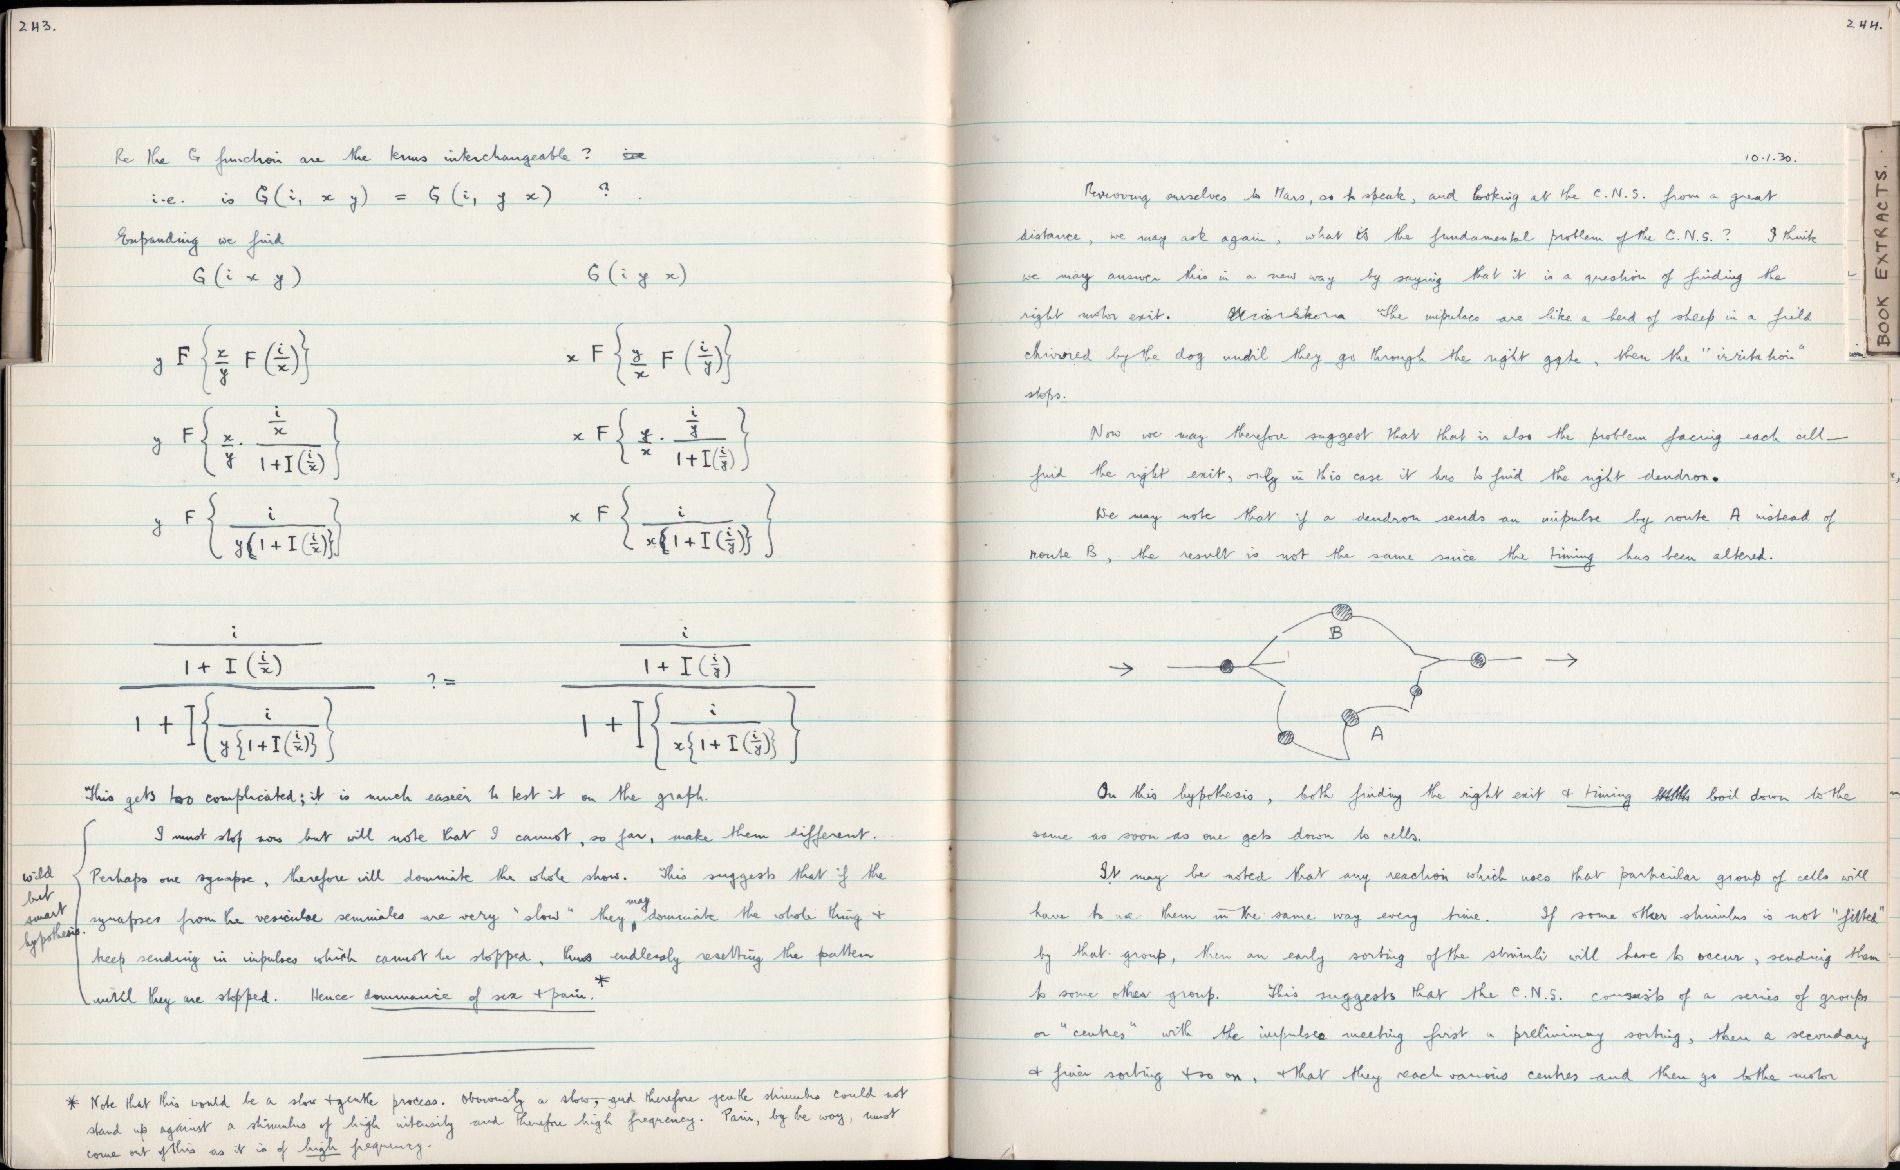 243.
Re the G function are the terms interchangeable?
i.e. is G(i, x y) = G(i, y x) ?
Expanding we find
G(i x y)	G(i y x)
y F{x/y F(i/x)}	x F{y/x F(i/y)}
y F{x/y · (i/x)/(1+I(i/x))}	x F{y/x · (i/y)/(1+I(i/y))}
y F{i/(y{1+I(i/x)})}	x F{i/(x{1+I(i/y)})}
(i/(1+I(i/x)))/(1+I{i/(y{1+I(i/x)})}) ?= (i/(1+I(i/y)))/(1+I{i/(x{1+I(i/y)})})
This gets too complicated; it is much easier to test it on the graph.
I must stop now but will note that I cannot, so far, make them different.
Perhaps one synapse, therefore will dominate the whole show. This suggests that if the
synapses from the vesiculae seminales are very "slow" they may dominate the whole thing +
keep sending in impulses which cannot be stopped, thus endlessly resetting the pattern
until they are stopped. Hence dominance of sex + pain.*
wild
but
smart
hypothesis.
* Note that this would be a slow + gentle process. Obviously a slow, and therefore gentle stimulus could not
stand up against a stimulus of high intensity and therefore high frequency. Pain, by be way, must
come out of this as it is of high frequency.
244.
10.1.30.
Removing ourselves to Mars, so to speak, and looking at the C.N.S. from a great
distance, we may ask again, what is the fundamental problem of the C.N.S.? I think
we may answer this in a new way by saying that it is a question of finding the
right motor exit. The impulses are like a herd of sheep in a field
chivvied by the dog until they go through the right gate, then the "irritation"
stops.
Now we may therefore suggest that that is also the problem facing each cell—
find the right exit, only in this case it has to find the right dendron.
We may note that if a dendron sends an impulse by route A instead of
route B, the result is not the same since the timing has been altered.
B
A
On this hypothesis, both finding the right exit + timing boil down to the
same as soon as one gets down to cells.
It may be noted that any reaction which uses that particular group of cells will
have to use them in the same way every time. If some other stimulus is not "fitted"
by that group, then an early sorting of the stimuli will have to occur, sending them
to some other group. This suggests that the C.N.S. consists of a series of groups
or "centres" with the impulse meeting first a preliminary sorting, then a secondary
+ finer sorting + so on, + that they reach various centres and then go to the motor
BOOK EXTRACTS.